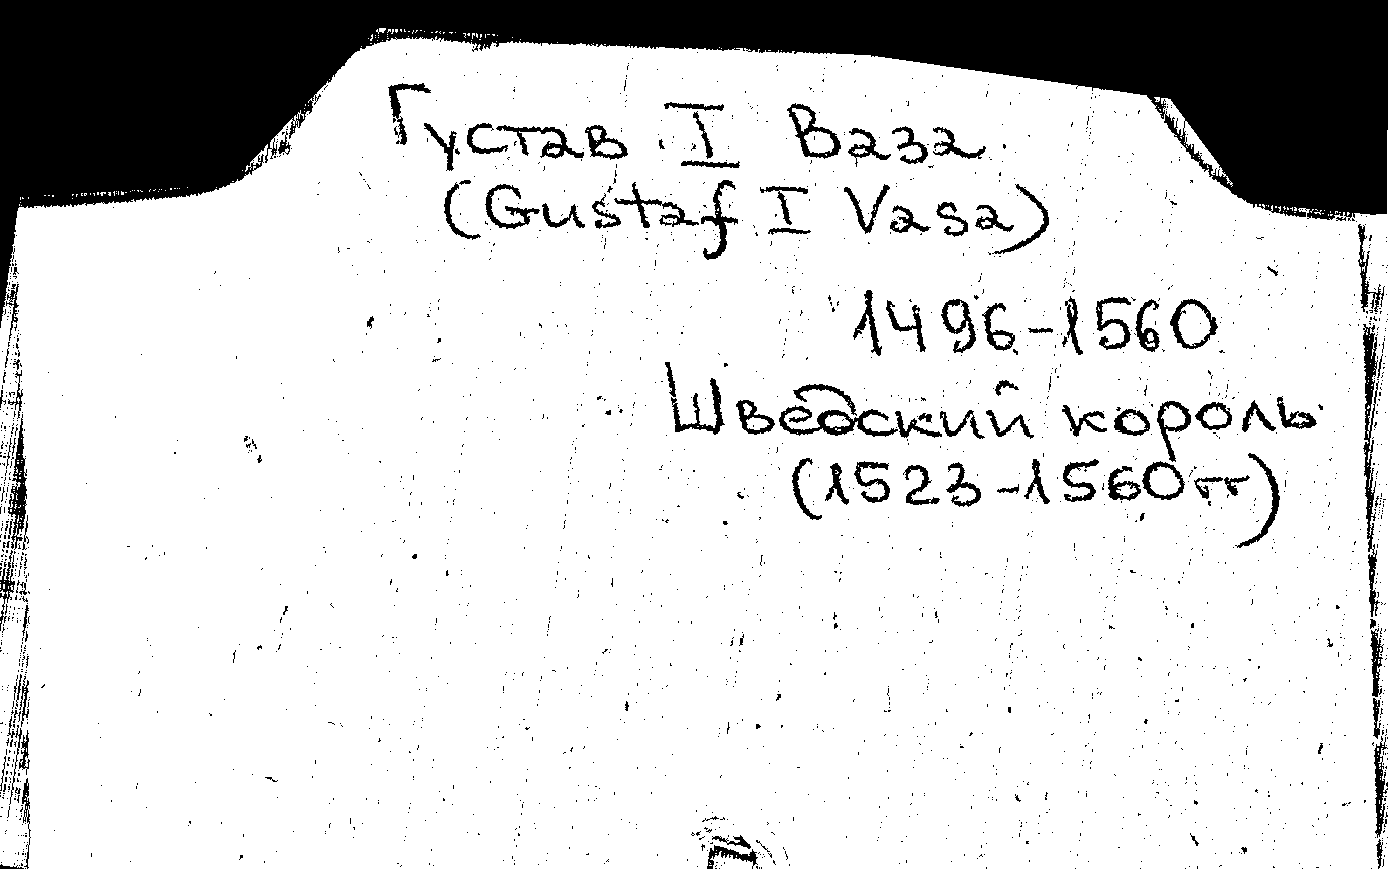 Густав I Ваза
(Gustaf I Vasa)
1496-1560
Шведский король
(1523-1560гг)